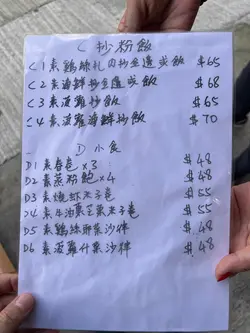 C 抄粉飯
C1 素鷄絲扎肉抄金邊或飯 $65
C2 素海鮮抄金邊或飯 $68
C3 素菠蘿抄飯 $65
C4 素菠蘿海鮮抄飯 $70
D 小食
D1 素春卷×3 $48
D2 素蒸粉飽×4 $48
D3 素燒蝦米子卷 $55
D4 素牛油果芒果米子卷 $55
D5 素鷄絲椰菜沙律 $48
D6 素菠蘿什菜沙律 $48